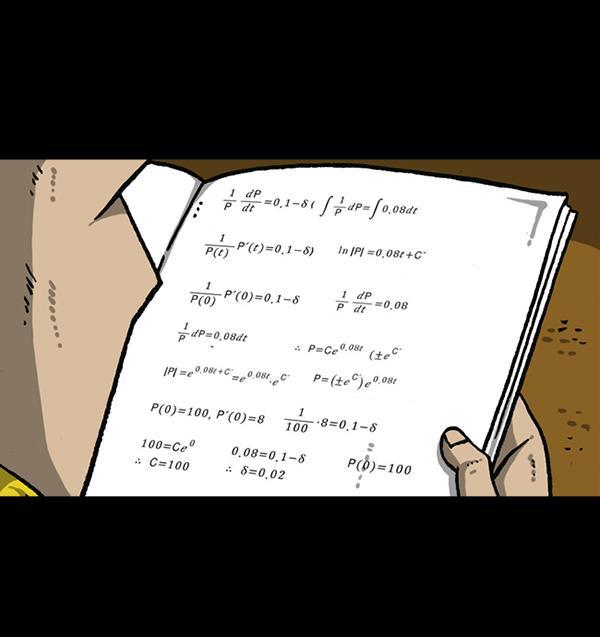 1/P dP/dt=0.1−δ( ∫1/P dP=∫0.08dt
1/P(t) P′(t)=0.1−δ) ln|P|=0.08t+C′
1/P(0) P′(0)=0.1−δ 1/P dP/dt=0.08
1/P dP=0.08dt ∴ P=Ce^0.08t (±e^C′
|P|=e^0.08t+C′=e^0.08t.e^C′ P=(±e^C′)e^0.08t
P(0)=100, P′(0)=8 1/100 ·8=0.1−δ
100=Ce^0 0.08=0.1−δ P(0)=100
∴ C=100 ∴ δ=0.02